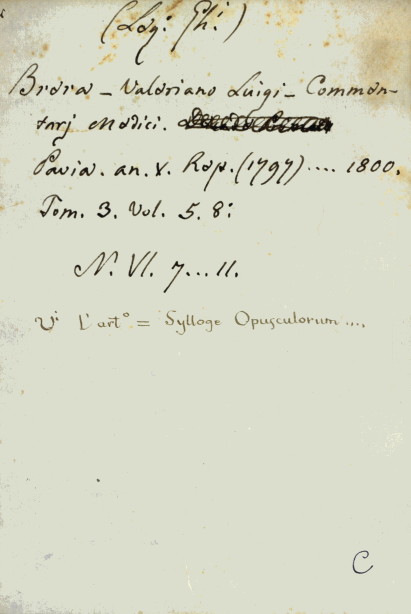 (Leg: Gh:)
Brera - Valeriano Luigi - Commen-
tarj Medici.
Pavia. an. v. Rep. (1797) .... 1800.
Tom. 3. Vol. 5. 8:
N. VI. 7...11.
Vi L'arto = Sylloge Opusculorum ....
C